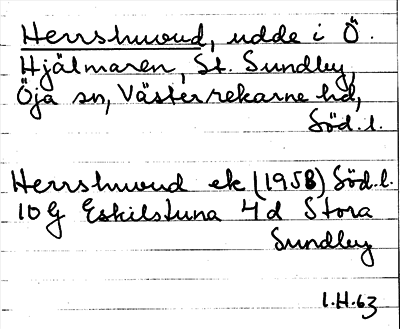 Hershuvud, udde i Ö.
Hjälmaren, St. Sundby,
Öja sn, Västerrekarne hd,
Söd.l.
Hershuvud ek (1958) Söd.l.
10G Eskilstuna 4d Stora
Sundby
I.H.63